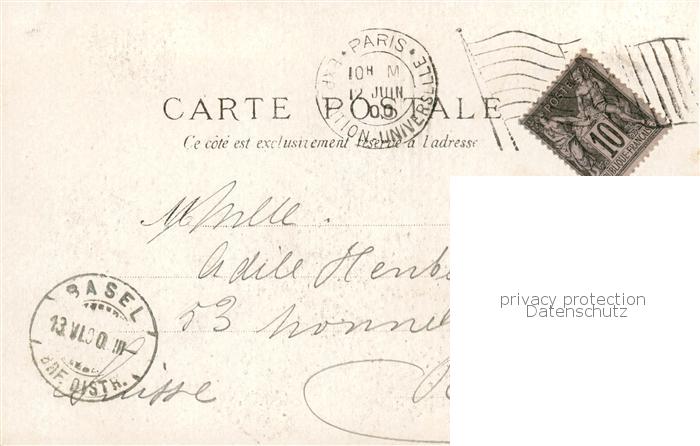 PARIS
EXPOSITION UNIVERSELLE
10H M
12 JUIN
00
POSTES
10
REPUBLIQUE FRANCAISE
CARTE POSTALE
Ce côté est exclusivement réservé à l'adresse
Adile
53
Suisse
BASEL
13.VI.00.III
BRF. DISTR.
privacy protection
Datenschutz